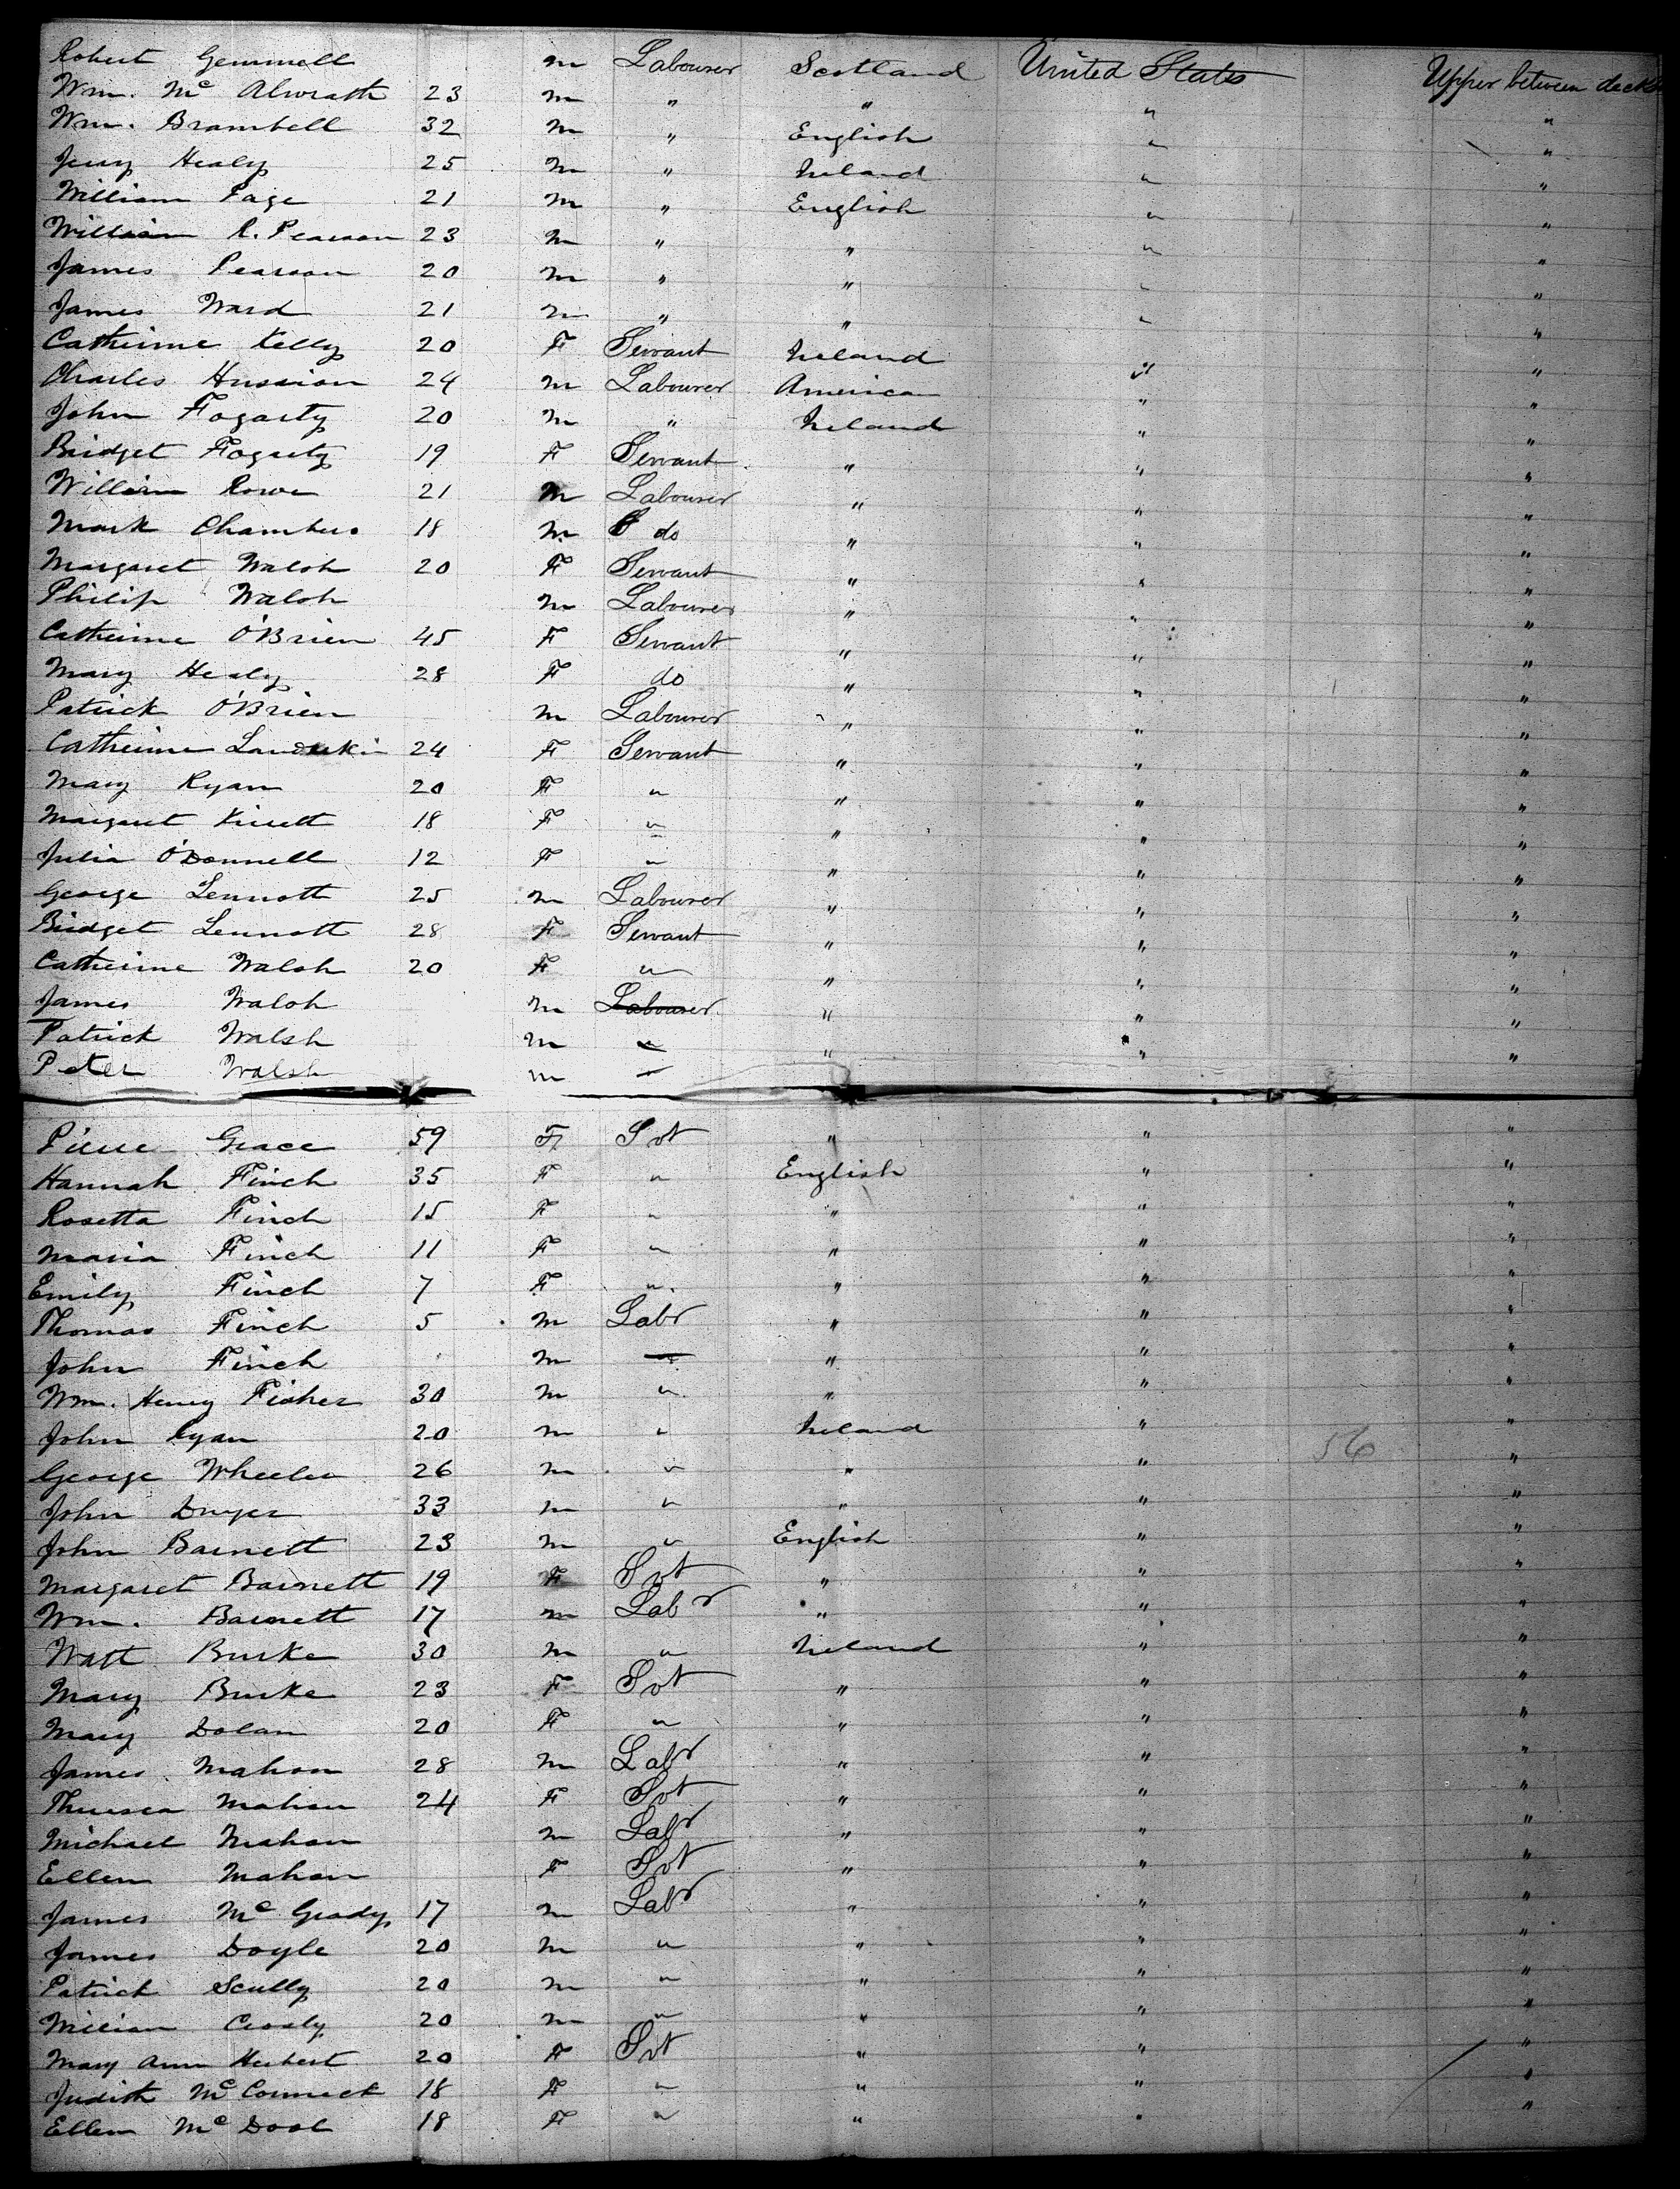 Robert Gemmell m Labourer Scotland United States Upper between decks
Wm. Mc Alwrath 23 m " " " "
Wm. Brambell 32 m " English " "
Jerry Healy 25 m " Ireland " "
William Page 21 m " English " "
William R. Pearson 23 m " " " "
James Pearson 20 m " " " "
James Ward 21 m " " " "
Catherine Kelly 20 F Servant Ireland " "
Charles 24 m Labourer American " "
John Fogarty 20 m " Ireland " "
Bridget Fogarty 19 F Servant " " "
William Rowe 21 m Labourer " " "
Mark Chambers 18 m do " " "
Margaret Walsh 20 F Servant " " "
Philip Walsh m Labourer " " "
Catherine O'Brien 45 F Servant " " "
Mary Healy 28 F do " " "
Patrick O'Brien m Labourer " " "
Catherine 24 F Servant " " "
Mary Ryan 20 F " " " "
Margaret 18 F " " " "
Julia O'Donnell 12 F " " " "
George Lennott 25 m Labourer " " "
Bridget Lennott 28 F Servant " " "
Catherine Walsh 20 F " " " "
James Walsh m Labourer " " "
Patrick Walsh m " " " "
Peter Walsh m "
Pierce Grace 59 F Svt " " "
Hannah Finch 35 F " English " "
Rosetta Finch 15 F " " " "
Maria Finch 11 F " " " "
Emily Finch 7 F " " " "
Thomas Finch 5 m Labr " " "
John Finch m " " " "
Wm. Henry Fisher 30 m " " " "
John Ryan 20 m " Ireland " "
George Wheeler 26 m " " " 56 "
John Dwyer 33 m " " " "
John Barnett 23 m " English " "
Margaret Barnett 19 F Svt " " "
Wm. Barnett 17 m Labr " " "
Watt Burke 30 m " Ireland " "
Mary Burke 23 F Svt " " "
Mary Dolan 20 F " " " "
James Mahon 28 m Labr " " "
Theresa Mahon 24 F Svt " " "
Michael Mahon m Labr " " "
Ellen Mahon F Svt " " "
James Mc Grady 17 m Labr " " "
James Doyle 20 m " " " "
Patrick Scully 20 m " " " "
William 20 m " " " "
Mary Ann Herbert 20 F Svt " " "
Judith McCormick 18 F " " " "
Ellen Mc Dool 18 F " " " "